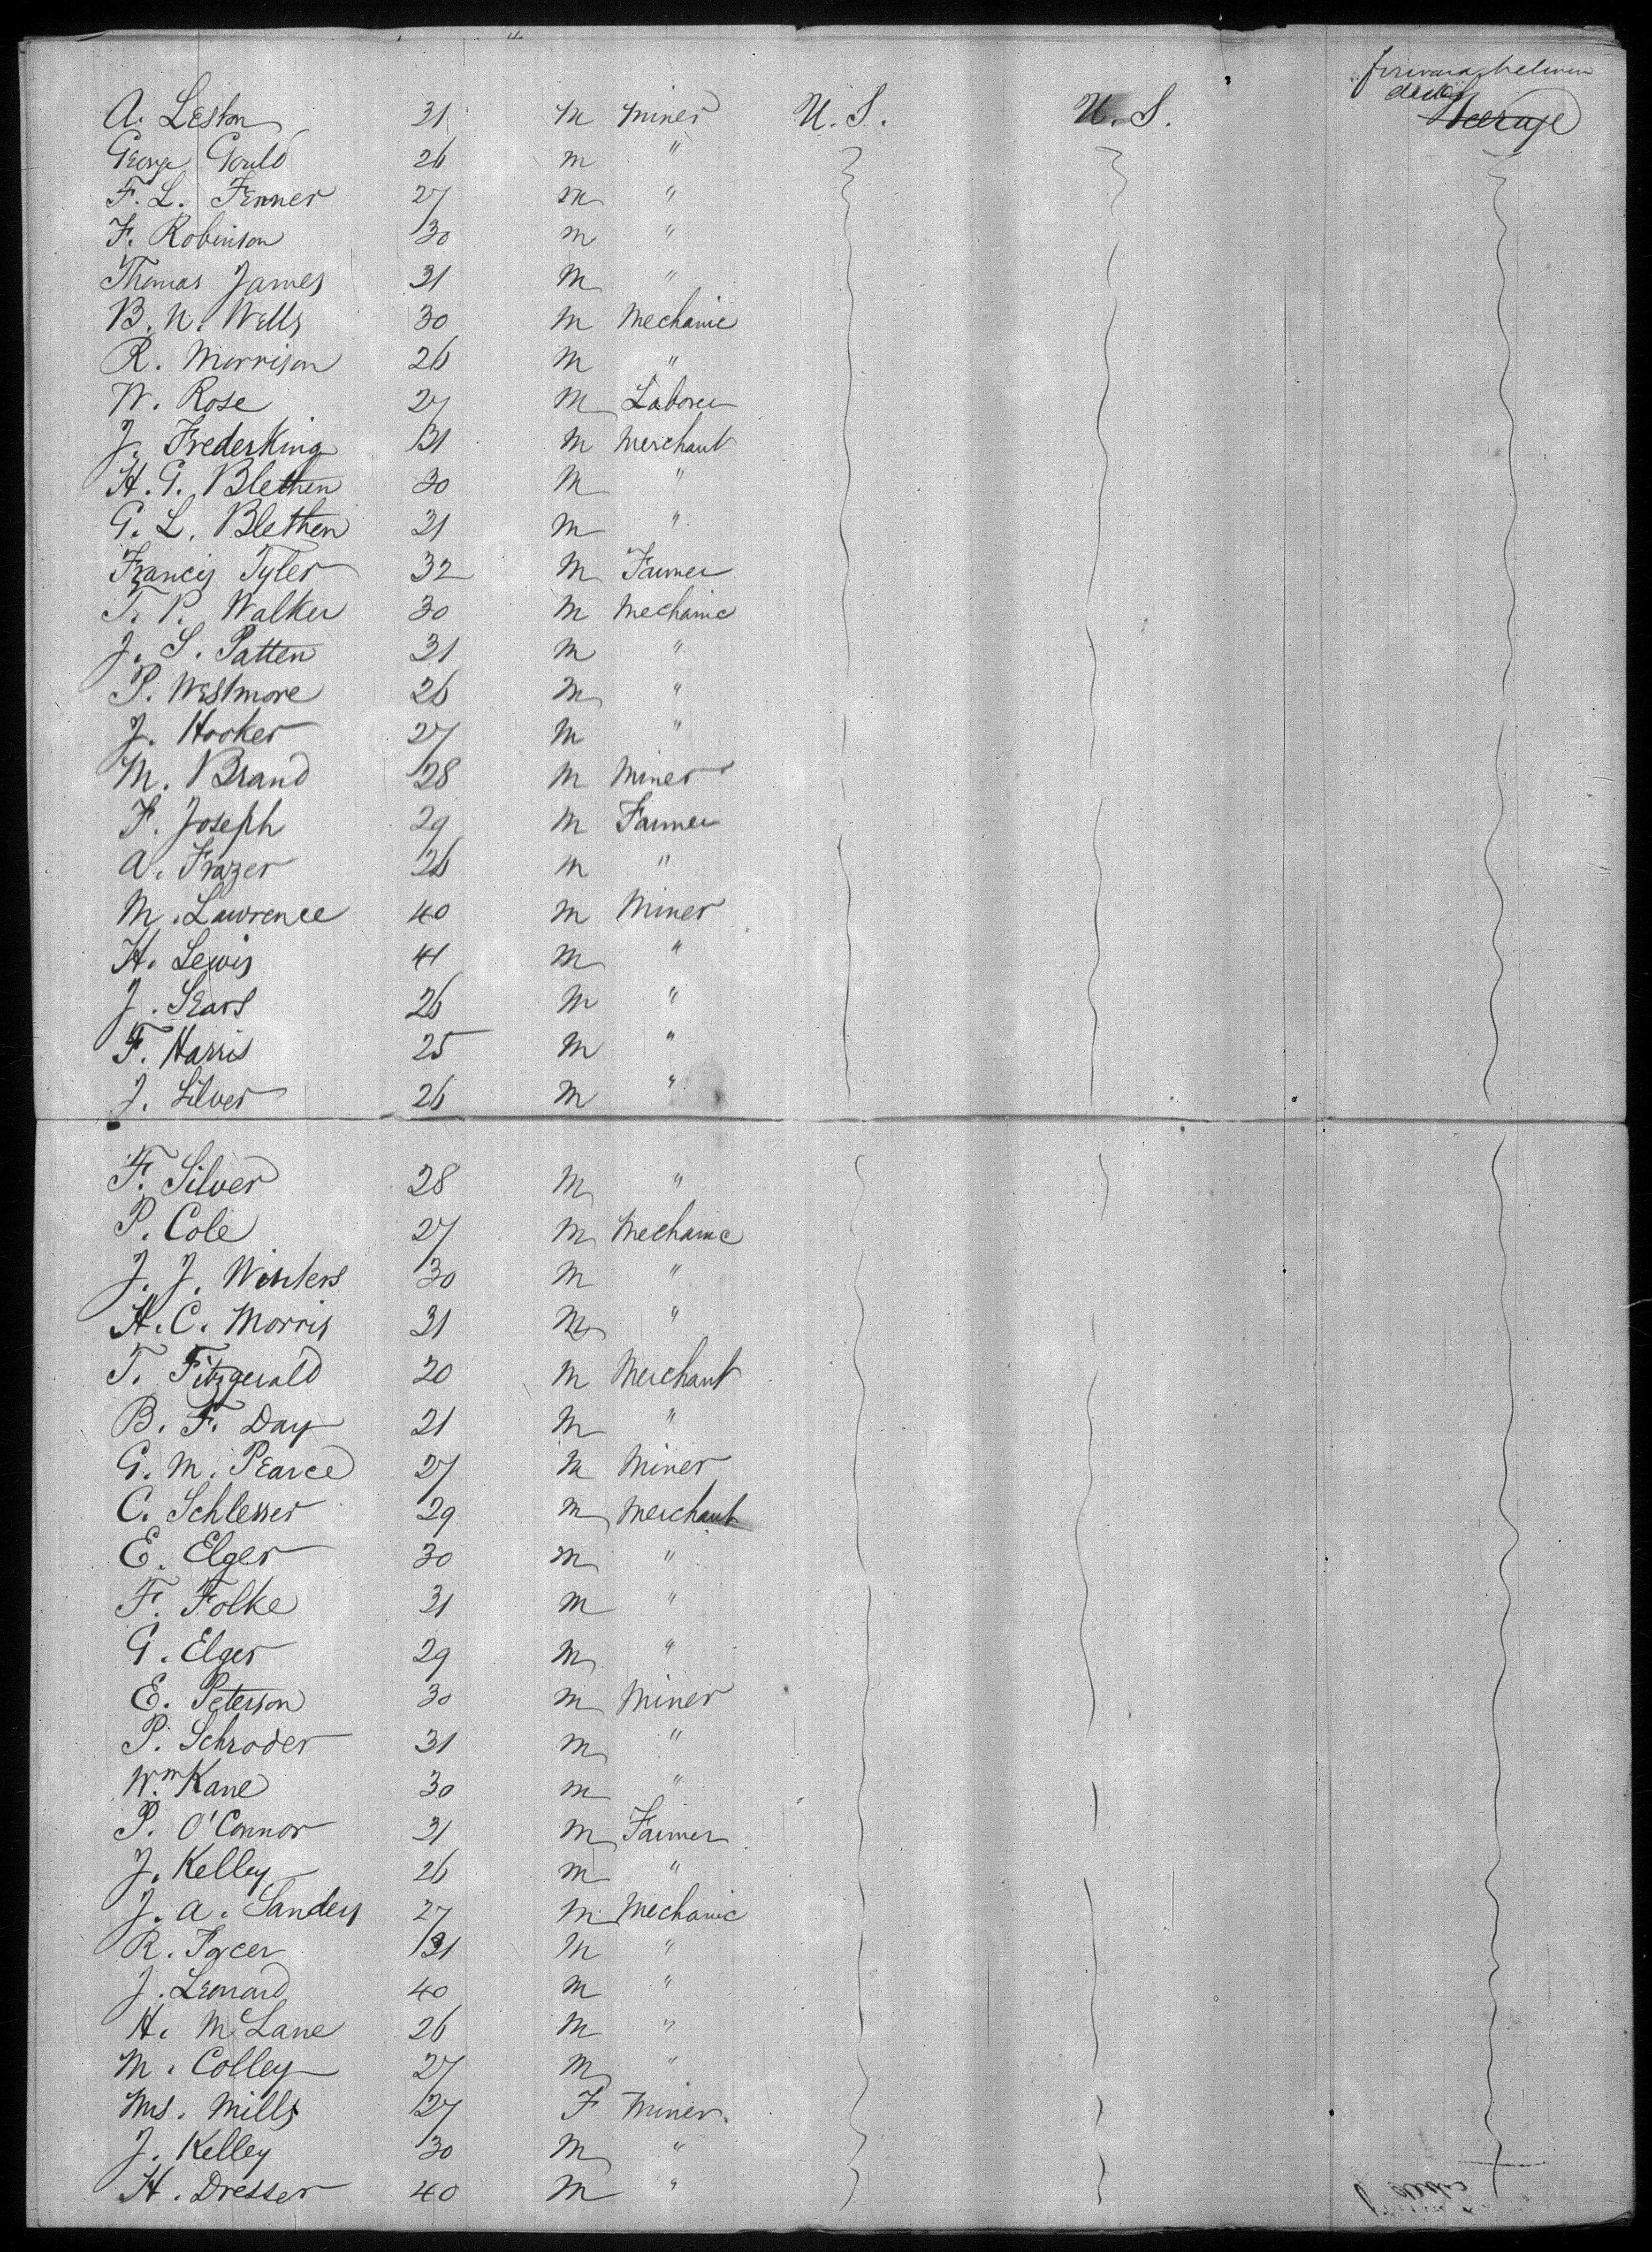 forward between
decks Steerage
A. Leston 31 m miner U. S. U. S.
George Gould 26 m "
F. L. Fenner 27 m "
F. Robinson 30 m "
Thomas James 31 m "
B. N. Wells 30 m Mechanic
R. Morrison 26 m "
W. Rose 27 m Laborer
J. Frederking 31 m Merchant
H. G. Blethen 30 m "
G. L. Blethen 31 m "
Francis Tyler 32 m Farmer
T. P. Walker 30 m Mechanic
J. S. Patten 31 m "
P. Westmore 26 m "
J. Hooker 27 m "
M. Brand 28 m Miner
F. Joseph 29 m Farmer
A. Frazer 26 m "
M. Lawrence 40 m Miner
H. Lewis 41 m "
J. Sears 26 m "
F. Harris 25 m "
J. Silver 26 m "
F. Silver 28 m "
P. Cole 27 m Mechanic
J. J. Winters 30 m "
H. C. Morris 31 m "
T. Fitzgerald 20 m Merchant
B. F. Day 21 m "
G. M. Pearce 27 m Miner
C. Schlesser 29 m Merchant
E. Elger 30 m "
F. Folke 31 m "
G. Elger 29 m "
E. Peterson 30 m Miner
P. Schroder 31 m "
Wm Kane 30 m "
P. O'Connor 31 m Farmer
J. Kelley 26 m "
J. A. Sanders 27 m Mechanic
R. 31 m "
J. Leonard 40 m "
H. McLane 26 m "
M. Colley 27 m "
Mrs. Mills 27 F Miner
J. Kelley 30 m "
H. Dresser 40 m "